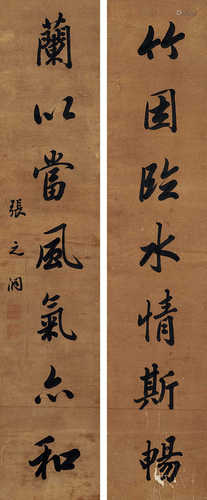 竹因臨水情斯暢
蘭以當風氣亦和
張之洞